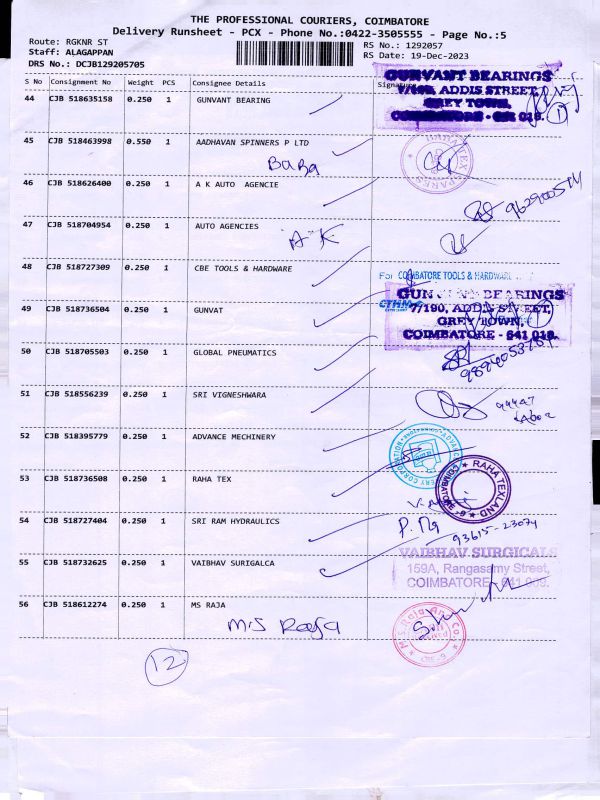 THE PROFESSIONAL COURIERS, COIMBATORE
Delivery Runsheet - PCX - Phone No.:0422-3505555 - Page No.:5
Route: RGKNR ST
Staff: ALAGAPPAN
DRS No.: DCJB129205705
RS No.: 1292057
RS Date: 19-Dec-2023
S No Consignment No Weight PCS Consignee Details Signature
GUNVANT BEARINGS
7/190, ADDIS STREET,
GREY TOWN,
COIMBATORE - 641 018.
44 CJB 518635158 0.250 1 GUNVANT BEARING
45 CJB 518463998 0.550 1 AADHAVAN SPINNERS P LTD
Baba
46 CJB 518626400 0.250 1 A K AUTO AGENCIE
47 CJB 518704954 0.250 1 AUTO AGENCIES
A K
48 CJB 518727309 0.250 1 CBE TOOLS & HARDWARE
For COIMBATORE TOOLS & HARDWARE
49 CJB 518736504 0.250 1 GUNVAT
GUNVANT BEARINGS
7/190, ADDIS STREET,
GREY TOWN,
COIMBATORE - 641 018.
50 CJB 518705503 0.250 1 GLOBAL PNEUMATICS
51 CJB 518556239 0.250 1 SRI VIGNESHWARA
52 CJB 518395779 0.250 1 ADVANCE MECHINERY
53 CJB 518736508 0.250 1 RAHA TEX
RAHA TEXLAND
54 CJB 518727404 0.250 1 SRI RAM HYDRAULICS
93615-23074
55 CJB 518732625 0.250 1 VAIBHAV SURIGALCA
VAIBHAV SURGICALS
159A, Rangasamy Street,
COIMBATORE - 641 009.
56 CJB 518612274 0.250 1 MS RAJA
M.S Raja
M.S. Raja And Co.
12